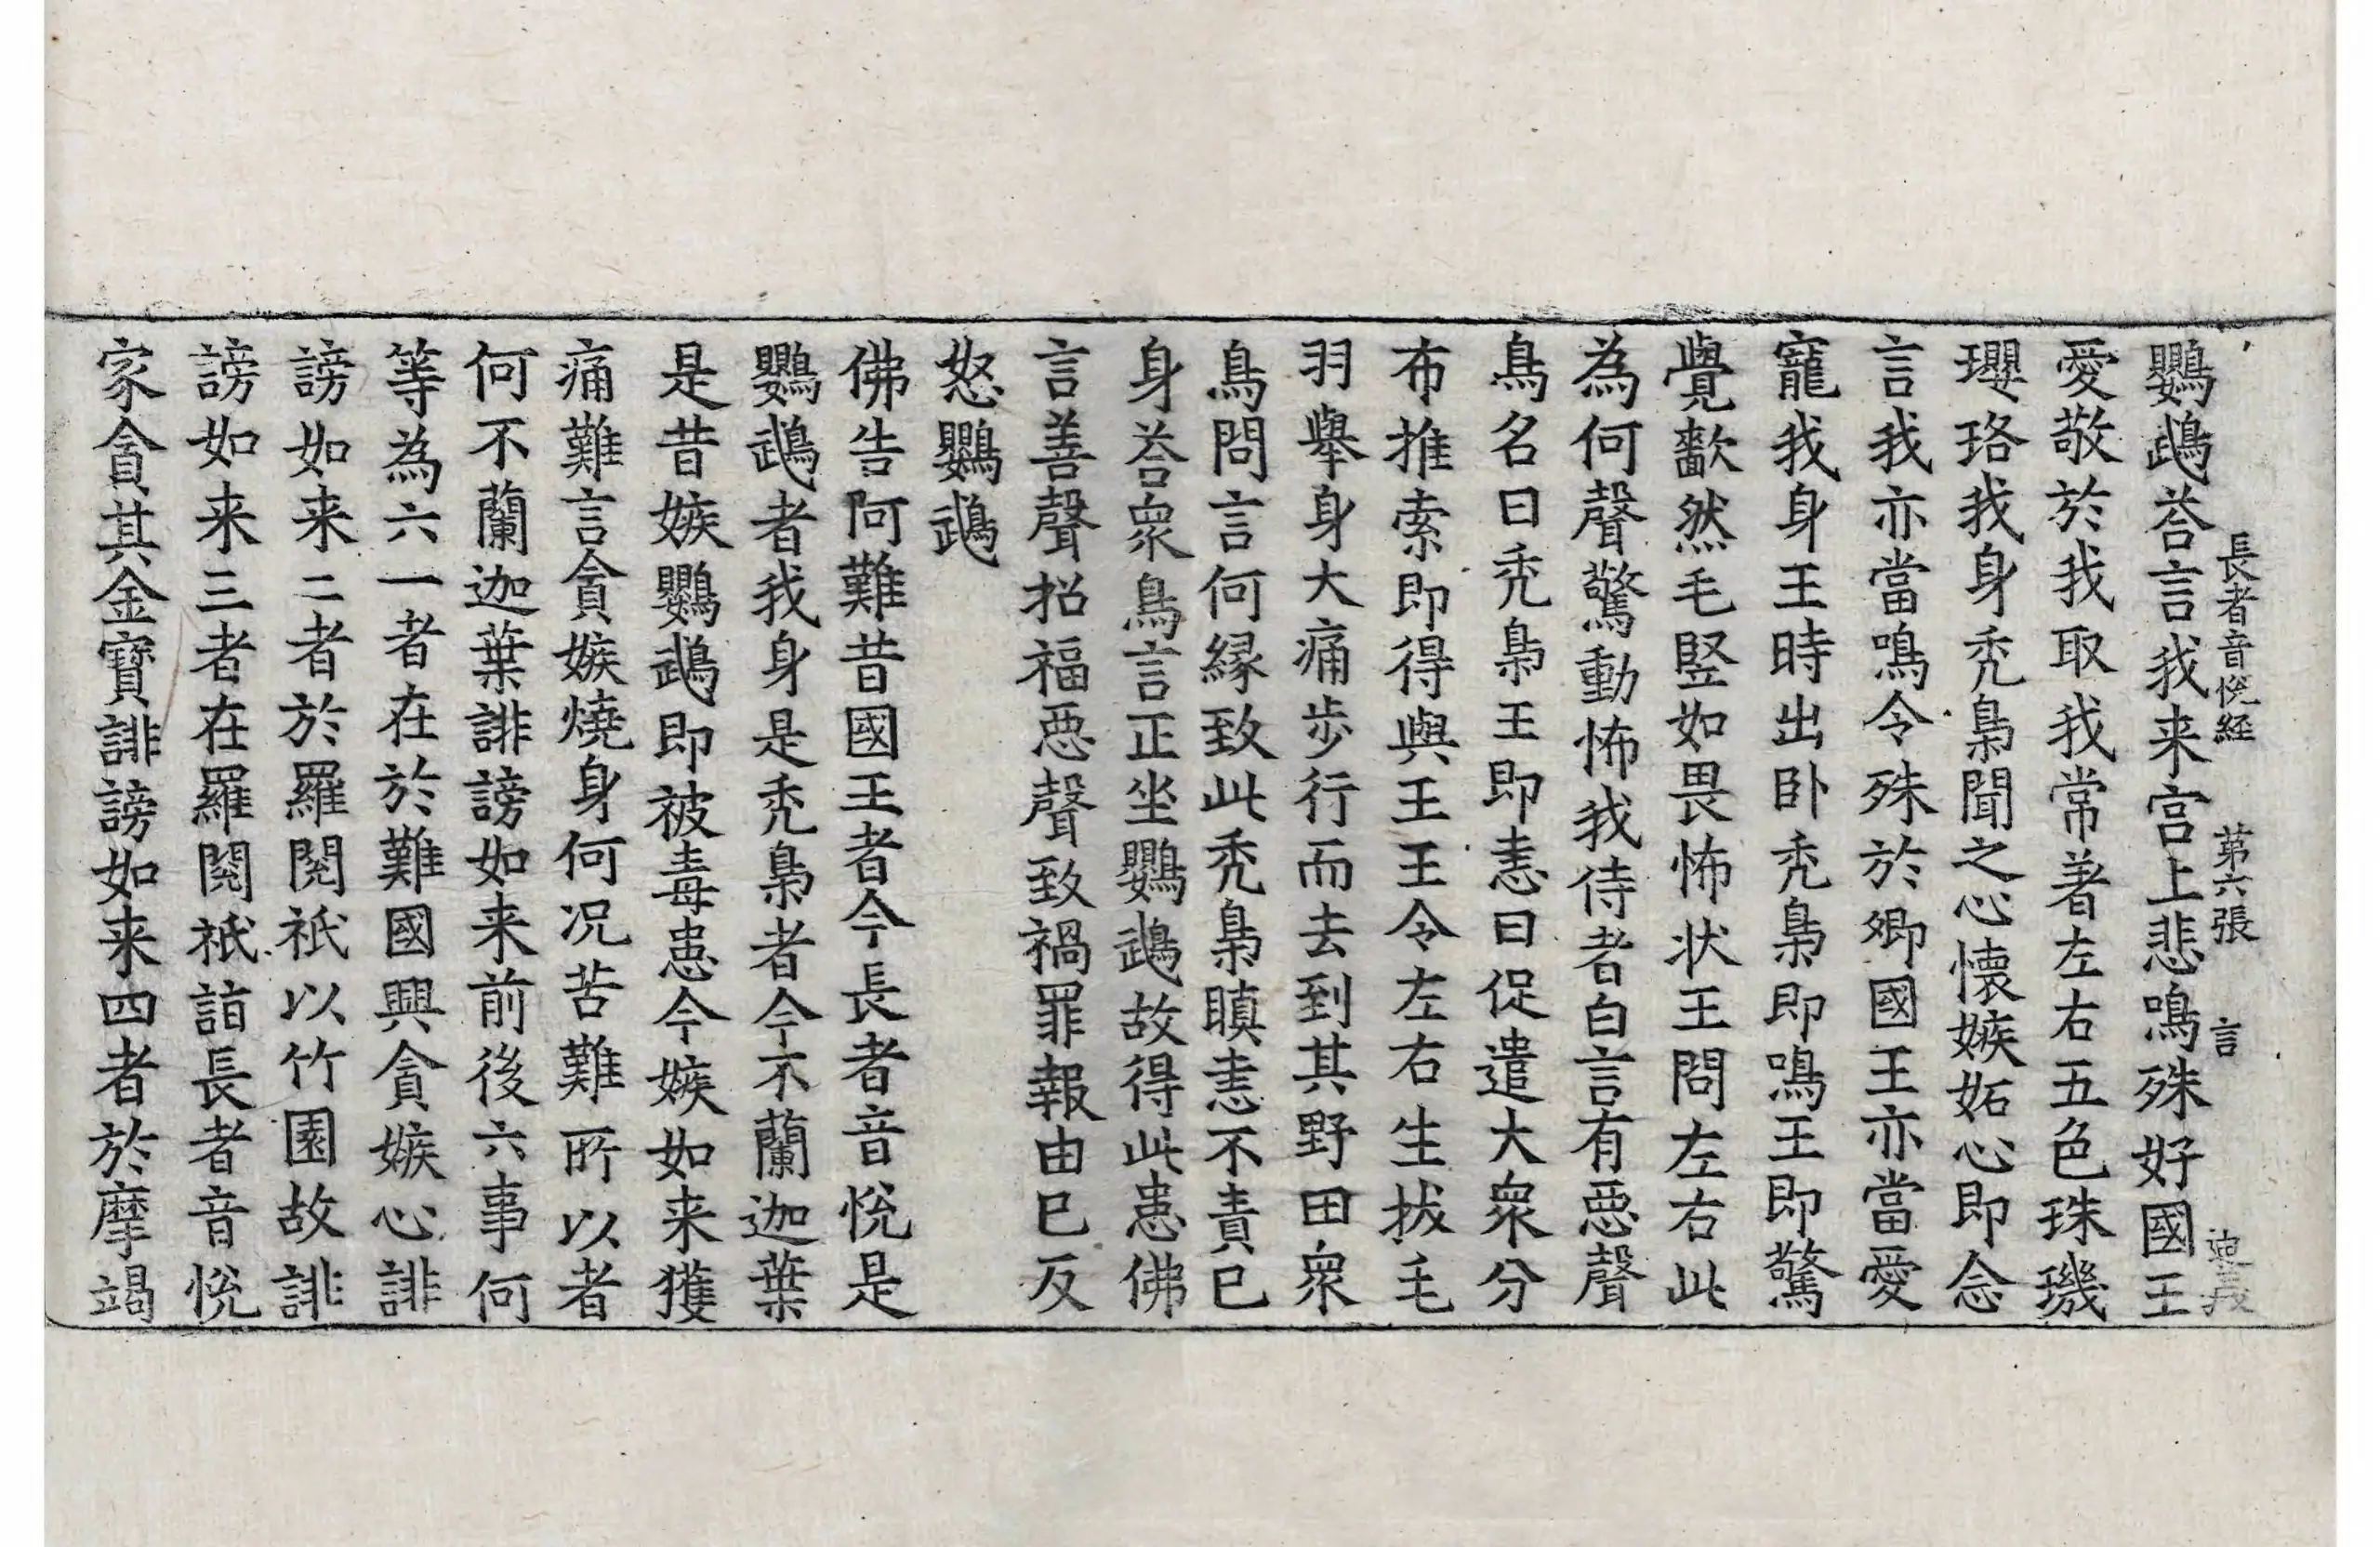 長者音悅経　第六張　言
鸚鵡荅言我来宫上悲鳴殊好國王
愛敬於我取我常著左右五色珠璣
瓔珞我身秃梟聞之心懷嫉妬心即念
言我亦當鳴令殊於卿國王亦當愛
寵我身王時出卧秃梟即鳴王即驚
覺歡然毛竪如畏怖状王問左右此
為何聲驚動怖我侍者白言有惡聲
鳥名曰秃梟王即恚曰促遣大衆分
布推索即得與王王令左右生拔毛
羽舉身大痛歩行而去到其野田衆
鳥問言何縁致此秃梟瞋恚不責已
身荅衆鳥言正坐鸚鵡故得此患佛
言善聲招福惡聲致禍罪報由已反
怒鸚鵡
佛告阿難昔國王者今長者音悅是
鸚鵡者我身是秃梟者今不蘭迦葉
是昔嫉鸚鵡即被毒患今嫉如来獲
痛難言貪嫉燒身何况苦難所以者
何不蘭迦葉誹謗如来前後六事何
等為六一者在於難國興貪嫉心誹
謗如来二者於羅閱祇以竹園故誹
謗如来三者在羅閱祇詣長者音悅
家貪其金寳誹謗如来四者於摩竭